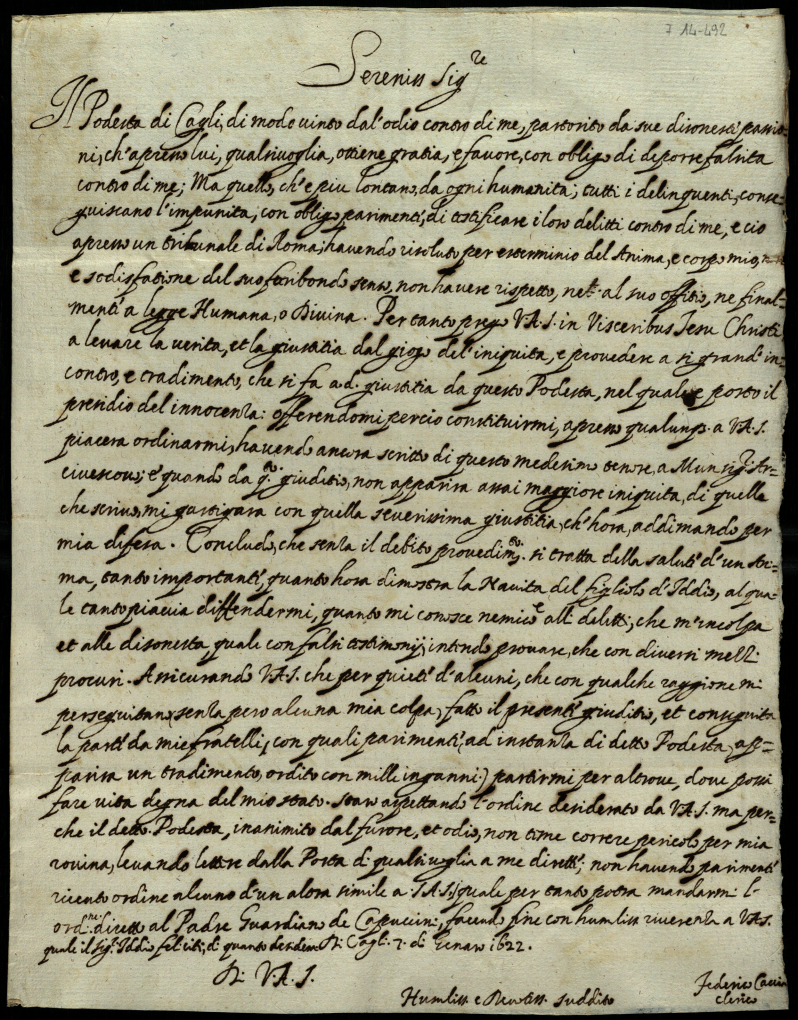 7 14-492
Sereniss Sig.re
Il Podesta di Cagli, di modo vinto dal'odio contro di me, partorito da sue disonesti passio=
ni, ch'apresso lui, qualsivoglia, ottiene gratia, e favore, con obligo di deporre falsita
contro di me; Ma quello, ch'e piu lontano, da ogni humanita; tutti i delinquenti, conse=
guiscano l'impunita, con obligo parimenti, di testificare i loro delitti contro di me, e cio
apresso un tribunale di Roma; havendo risoluto per esterminio del Anima, e corpo mio,
e sodisfatione del suo furibondo senso, non havere rispetto, ne al suo offitio, ne final=
menti a legge Humana, o Divina. Pertanto prego V.A.S. in Visceribus Jesu Christi
a levare la verita, et la giustitia dal giogo del'iniquita, e provedere a si grand' in=
contro, e tradimento, che si fa a d. giustitia da questo Podesta, nel quale e posto il
presidio del innocenza: offerendomi percio constituirmi, apresso qualunq. a V.A.S.
piacera ordinarmi, havendo ancora scritto di questo medesimo tenore, a Munsig.r Ar=
civescovo; e quando da q.o giuditio, non apparira assai maggiore iniquita, di quella
che scrivo, mi gastigara con quella severissima giustitia, ch'hora, addimando per
mia difesa. Concludo, che senza il debito provedim.to si tratta della saluti d'un Ani=
ma, tanto importanti, quanto hora dimostra la Navita del figliolo d'Iddio, al qua=
le tanto piaccia diffendermi, quanto mi conosce nemico alli delitti, che m'incolpa
et alle disonesta quale con falsi testimonij, intendo provare, che con diversi mezzi
procuri. Assicurando V.A.S. che per quieti d'alcuni, che con qualche raggione mi
perseguitano, senza pero alcuna mia colpa, fatto il presenti giuditio, et conseguita
la parti da miei fratelli, con quali parimenti, ad instanza di detto Podesta, ap=
parisa un tradimento, ordito con mille inganni) partirmi per altrove, dove possi
fare vita degna del mio stato. Staro aspettando l'ordine desiderato da V.A.S. ma per=
che il detto Podesta, inanimito dal furore, et odio, non time correre pericolo per mia
rovina, levando lettere dalla Posta di qualsivoglia a me diretti; non havendo parimenti
ricevto ordine alcuno d'un alora simile a S.A.S. quale per tanto potra mandarmi l'
ord.ne diretto al Padre Guardiano de Capuccini, facendo fine con humiliss riverenza a V.A.S.
quale il sig.r Iddio feliciti, di quanto desidera Di Cagli 7. di Genaro 1622.
Di V.A.S.
Humiliss e Devotiss. suddito
Federico
clerico